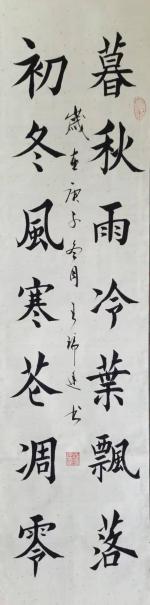 暮秋雨冷葉飄落
初冬風寒苍凋零
歲在庚子冬月